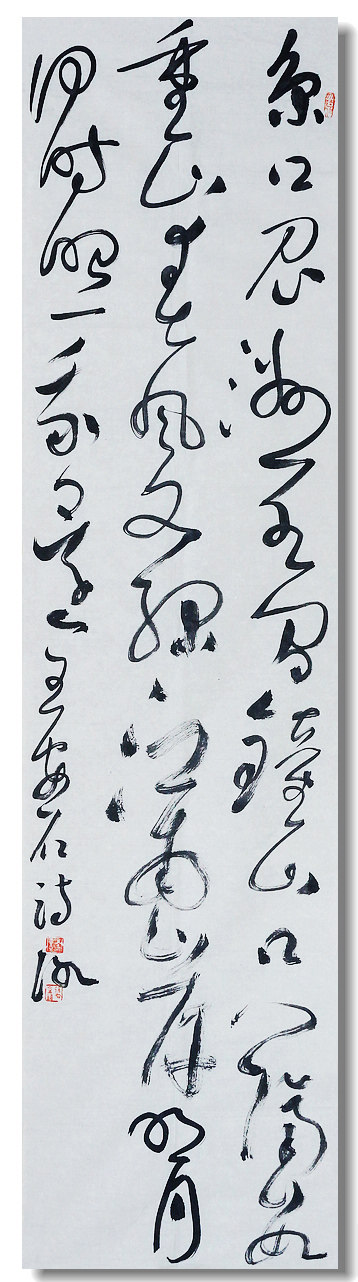 京口瓜洲一水間鐘山只隔數
重山春風又綠江南岸明月
何時照我還王安石詩